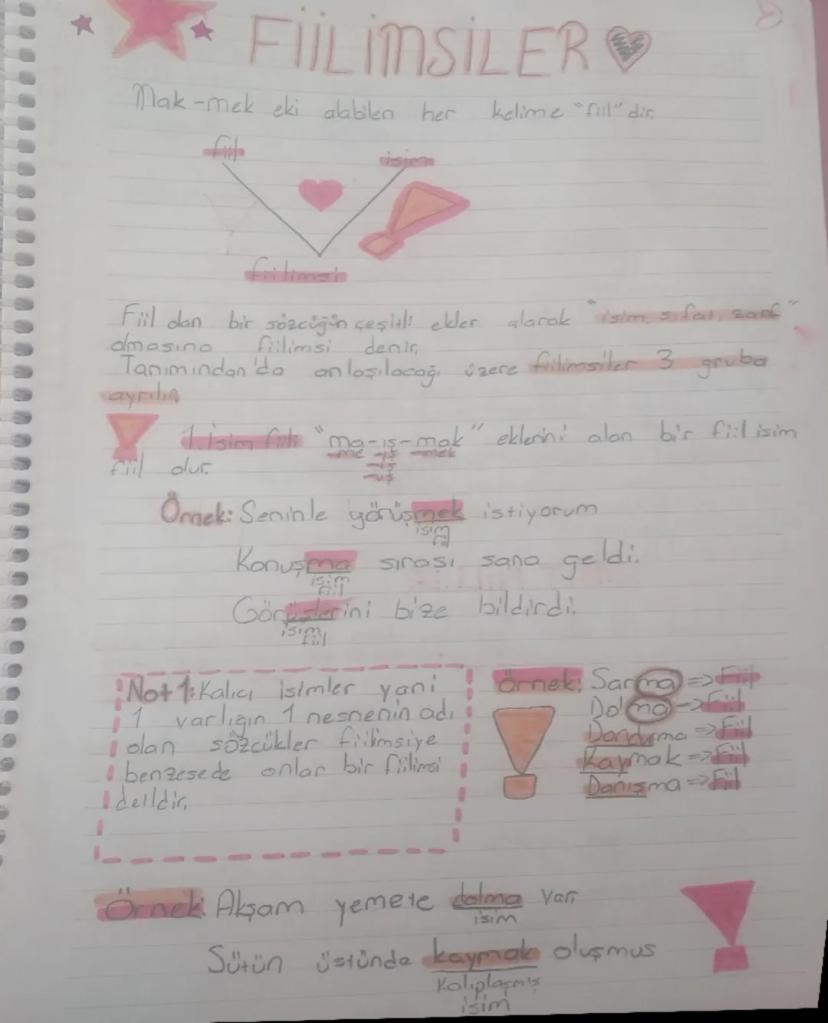 FİİLİMSİLER
Mak-mek eki alabilen her kelime "fiil"dir.
fiil isim
fiilimsi
Fiil dan bir sözcüğün çeşitli ekler alarak "isim, sıfat, zarf"
olmasına fiilimsi denir,
Tanımından'da anlaşılacağı üzere fiilimsiler 3 gruba
ayrılır
1. İsim fiil: "ma-ış-mak" eklerini alan bir fiil isim
me -iş -mek
fiil olur. -üş
-uş
Örnek: Seninle görüşmek istiyorum
isim
fiil
Konuşma sırası sana geldi.
isim
fiil
Görüşlerini bize bildirdi.
isim
fiil
Not 1: Kalıcı isimler yani
1 varlığın 1 nesnenin adı
olan sözcükler fiilimsiye
benzesede onlar bir fiilimsi
deildir,
Örnek: Sarma => Fiil
Dolma -> Fiil
Dondurma => Fiil
Kaymak => Fiil
Danışma => Fiil
Örnek: Akşam yemete dolma var.
isim
Sütün üstünde kaymak oluşmus
Kalıplaşmış
isim